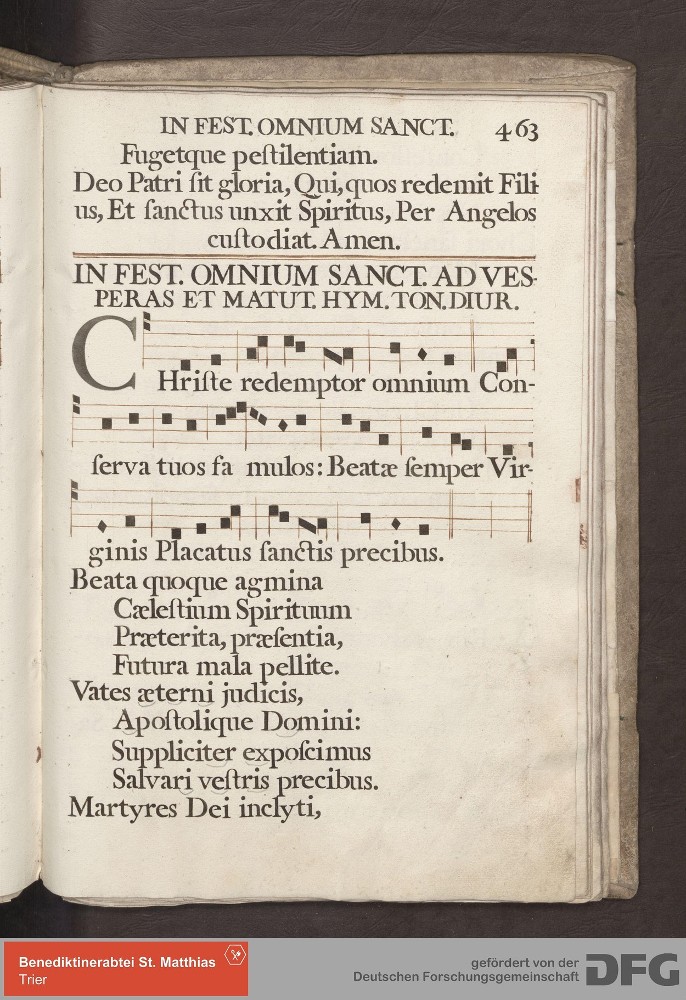 IN FEST. OMNIUM SANCT. 463
Fugetque peſtilentiam.
Deo Patri ſit gloria, Qui, quos redemit Fili-
us, Et ſanctus unxit Spiritus, Per Angelos
cuſtodiat. Amen.
IN FEST. OMNIUM SANCT. AD VES-
PERAS ET MATUT. HYM. TON. DIUR.
CHriſte redemptor omnium Con-
ſerva tuos fa mulos: Beatæ ſemper Vir-
ginis Placatus ſanctis precibus.
Beata quoque agmina
Cæleſtium Spirituum
Præterita, præſentia,
Futura mala pellite.
Vates æterni judicis,
Apoſtolique Domini:
Suppliciter expoſcimus
Salvari veſtris precibus.
Martyres Dei inclyti,
Benediktinerabtei St. Matthias
Trier
gefördert von der
Deutschen Forschungsgemeinschaft
DFG